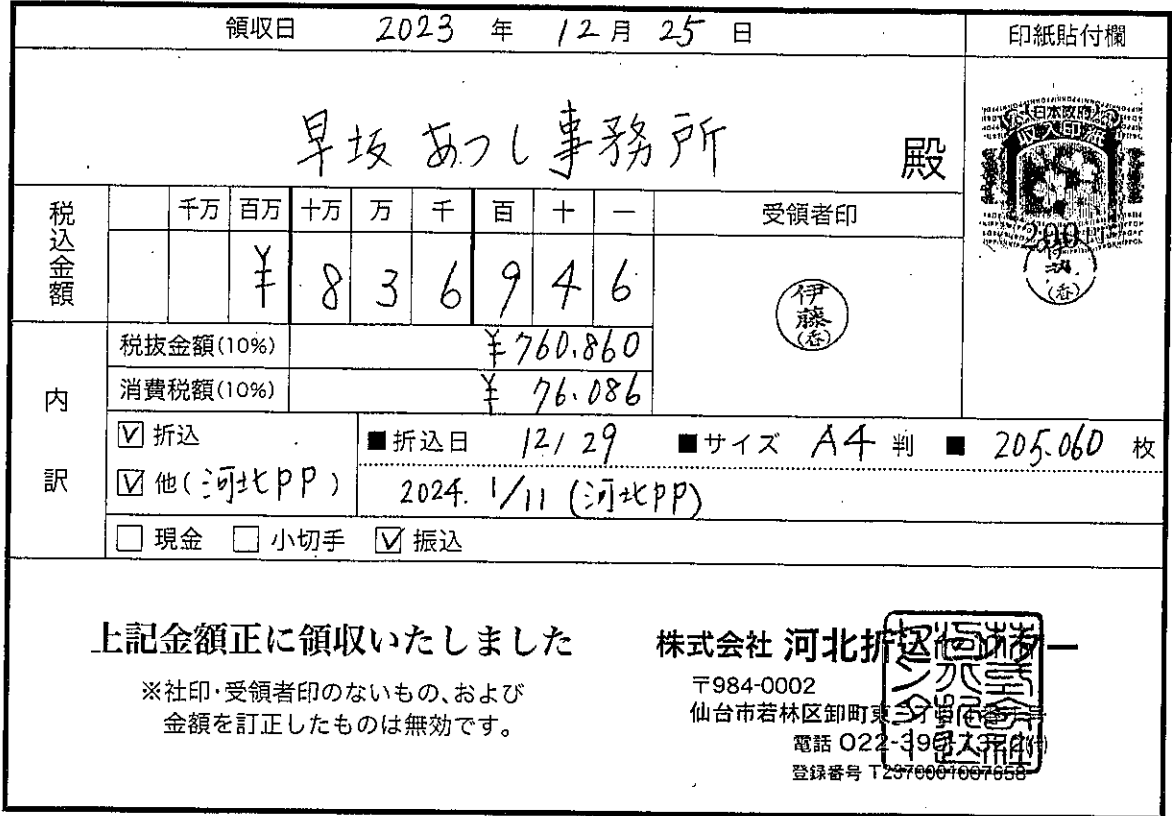 領収日 2023 年 12 月 25 日
印紙貼付欄
早坂あつし事務所 殿
日本政府
収入印紙
200円
税込金額
千万 百万 十万 万 千 百 十 一
¥ 8 3 6 9 4 6
受領者印
伊藤(香)
内訳
税抜金額(10%) ¥760.860
消費税額(10%) ¥ 76.086
☑ 折込 ■折込日 12/29 ■サイズ A4 判 ■ 205.060 枚
☑ 他(河北PP) 2024. 1/11 (河北PP)
□ 現金 □ 小切手 ☑ 振込
上記金額正に領収いたしました
※社印・受領者印のないもの、および
金額を訂正したものは無効です。
株式会社 河北折込センター
〒984-0002
仙台市若林区卸町東
電話 022-390-
登録番号 T2370001007658